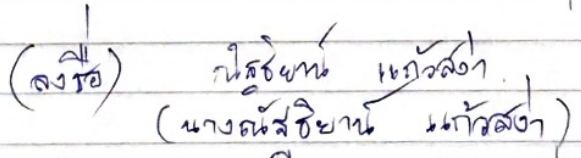 (ลงชื่อ) ณัฐธิยาน์ แก้วสง่า
(นางณัฐธิยาน์ แก้วสง่า)